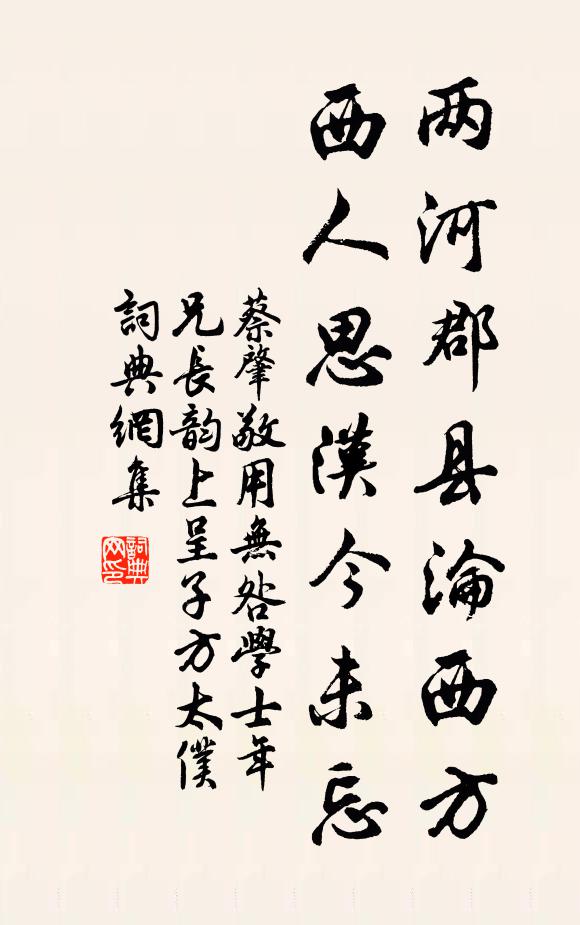 两河郡县沦西方
西人思漢今未忘
蔡肇敬用無咎學士年
兄長韵上呈子方太僕
詞典網集
詞典网印